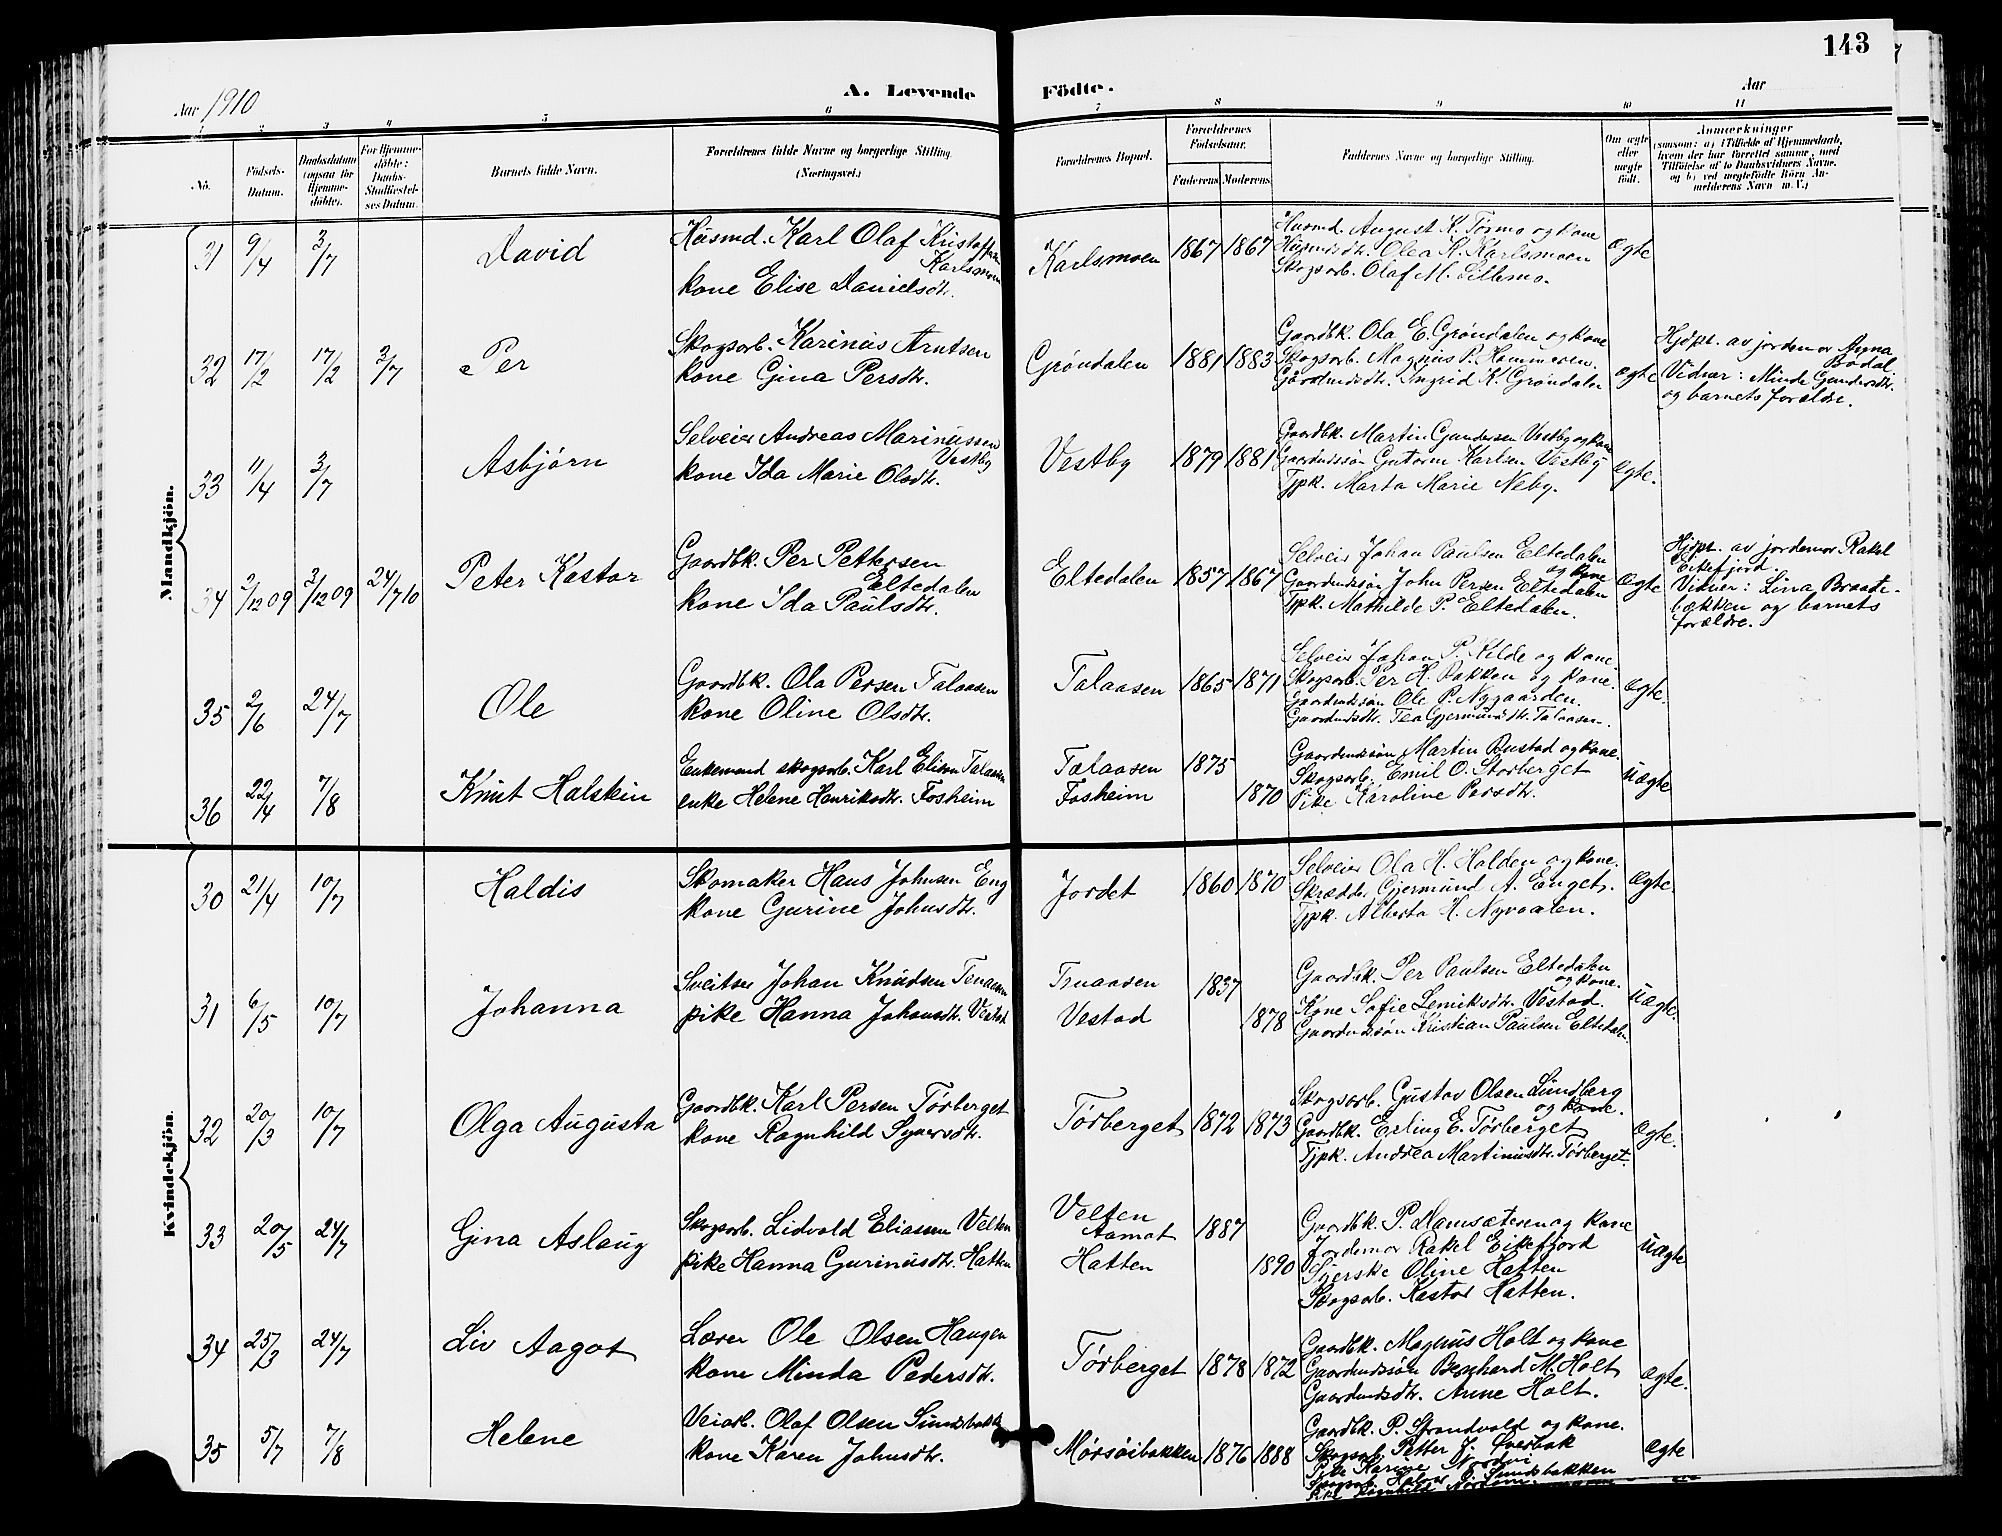 143
Aar 1910
A. Levende Födte.
Aar
1 2 3 4 5 6 7 8 9 10 11
No.
Födsels-Datum.
Daabsdatum (ogsaa for Hjemme-döbte).
For Hjemme-döbte: Daabs-Stadfæstel-ses Datum.
Barnets fulde Navn.
Forældrenes fulde Navne og borgerlige Stilling.
(Næringsvei.)
Forældrenes Bopæl.
Forældrenes Födselsaar.
Faderens Moderens
Faddernes Navne og borgerlige Stilling.
Om ægte eller uægte födt.
Anmærkninger
(saasom: a) i Tilfælde af Hjemmedaab,
hvem der har forrettet samme, med
Tilföielse af to Daabsvidners Navne.
og b) ved uægtefödte Börn An-
melderens Navn m. V.)
Mandkjön.
31 9/4 3/7 David
Husmd. Karl Olaf Kristoffersen
Karlsmoen
kone Elise Danielsdtr.
Karlsmoen 1867 1867
Husmd. August K. Tørmo og kone
Husmdsdtr. Olea K. Karlsmoen
Skogsarb. Olaf M. Lillemo.
ægte
32 17/2 17/2 3/7 Per
Skogsarb. Karinus Arntsen
kone Gina Persdtr.
Grøndalen 1881 1883
Gaardbk. Ola E. Grøndalen og kone
Skogsarb. Magnus P. Hammeren
Gaardmdsdtr. Ingrid K. Grøndalen
ægte
Hjdpt. av jordemor Magna
Bodal
Vidner: Minda Gundersdtr.
og barnets forældre.
33 11/4 3/7 Asbjørn
Selveier Andreas Marinussen
Vestby
kone Ida Marie Olsdtr.
Vestby 1879 1881
Gaardbk. Martin Gundersen Vestby og kone
Gaardmdssøn Gutorm Karlsen Vestby
Tjpk. Marta Marie Neby.
ægte.
34 2/12 09 3/12 09 24/7 10 Peter Kastor
Gaardbk. Per Pettersen
Eltedalen
kone Ida Paulsdtr.
Eltedalen 1857 1867
Selveier Johan Paulsen Eltedalen
og kone
Gaardmdssøn John Persen Eltedalen
Tjpk. Mathilde P. Eltedalen.
ægte
Hjdpt. av jordemor Rakel
Eikefjord.
Vidner: Lina Braate-
bækken og barnets
forældre.
35 2/6 24/7 Ole
Gaardbk. Ola Persen Talaasen
kone Oline Olsdtr.
Talaasen 1865 1871
Selveier Johan P. Kilde og kone.
Skogsarb. Per H. Bakken og kone.
Gaardmdssøn Ole P. Nygaarden.
Gaardmdsdtr. Tea Gjermundsdtr. Talaasen.
ægte.
36 22/4 7/8 Knut Halskin
Enkemand skogsarb. Karl Elisen Talaasen
enke Helene Henriksdtr. Fosheim
Talaasen 1875
Fosheim 1870
Gaardmdssøn Martin Bustad og kone.
Skogsarb. Emil O. Storberget
Pike Karoline Persdtr.
uægte
Kvindekjön.
30 21/4 10/7 Haldis
Skomaker Hans Johnsen Eng
kone Gurine Johnsdtr.
Jordet 1860 1870
Selveier Ola H. Holden og kone.
Skrædder Gjermund A. Enget.
Tjpk. Alberta H. Nyvaalen.
ægte.
31 6/5 10/7 Johanna
Sveitser Johan Knudsen
pike Hanna Johansdtr. Vestad
Vestad 1837
1878
Gaardbk. Per Paulsen Eltedalen
og kone.
Kone Sofie Vestad.
Gaardmdssøn Kristian Paulsen Eltedalen.
uægte.
32 20/3 10/7 Olga Augusta
Gaardbk. Karl Persen Tørberget
kone Ragnhild Syversdtr.
Tørberget 1872 1873
Skogsarb. Gustav Olsen Lundberg
og kone.
Gaardbk. Erling E. Tørberget
Tjpk. Andrea Martinusdtr. Tørberget.
ægte.
33 20/5 24/7 Gina Aslaug
Skogsarb. Lidvald Eliassen Velten
pike Hanna Gurinusdtr. Hatten
Velten
Aamot 1887
Hatten 1890
Gaardbk. P. Damsæteren og kone
Jordemor Rakel Eikefjord
Syerske Oline Hatten
Skogsarb. Kastor Hatten.
uægte
34 25/3 24/7 Liv Aagot
Lærer Ole Olsen Haugen
kone Minda Pedersdtr.
Tørberget 1878 1872
Gaardbk. Magnus Holt og kone
Gaardmdssøn Bernhard M. Holt
Gaardmdsdtr. Anne Holt.
ægte.
35 5/7 7/8 Helene
Veiarb. Olaf Olsen Sundsbakk
kone Karen Johnsdtr.
Mørsøibakken 1876 1888
Gaardbk. P. Strandvold og kone.
Skogsarb. Petter J. Øverbak
Pike Karine
Skogsarb. Halvor O. Sundsbakken
Pike Ragnhild
ægte